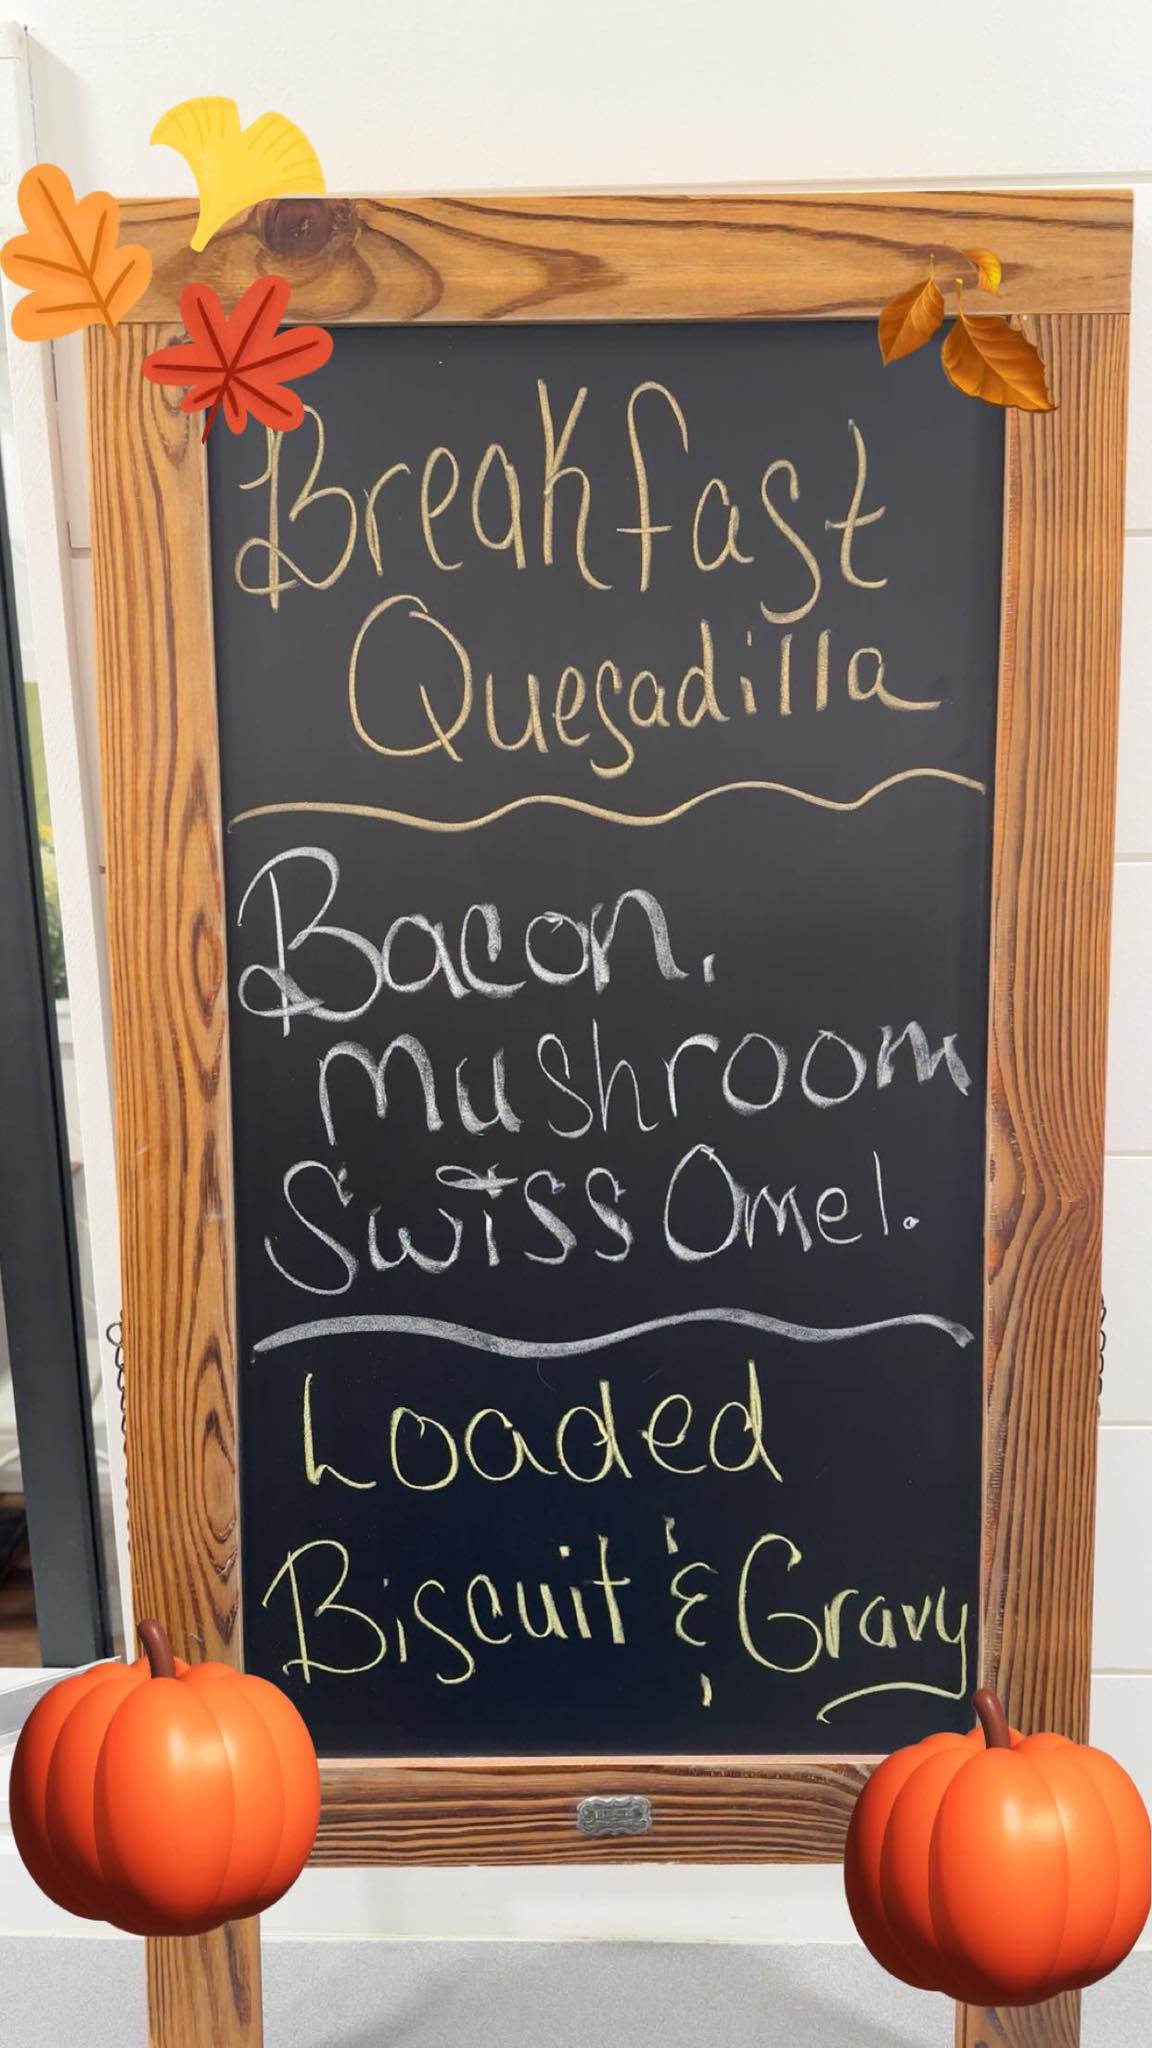 Breakfast
Quesadilla
Bacon,
mushroom
Swiss Omel.
Loaded
Biscuit & Gravy